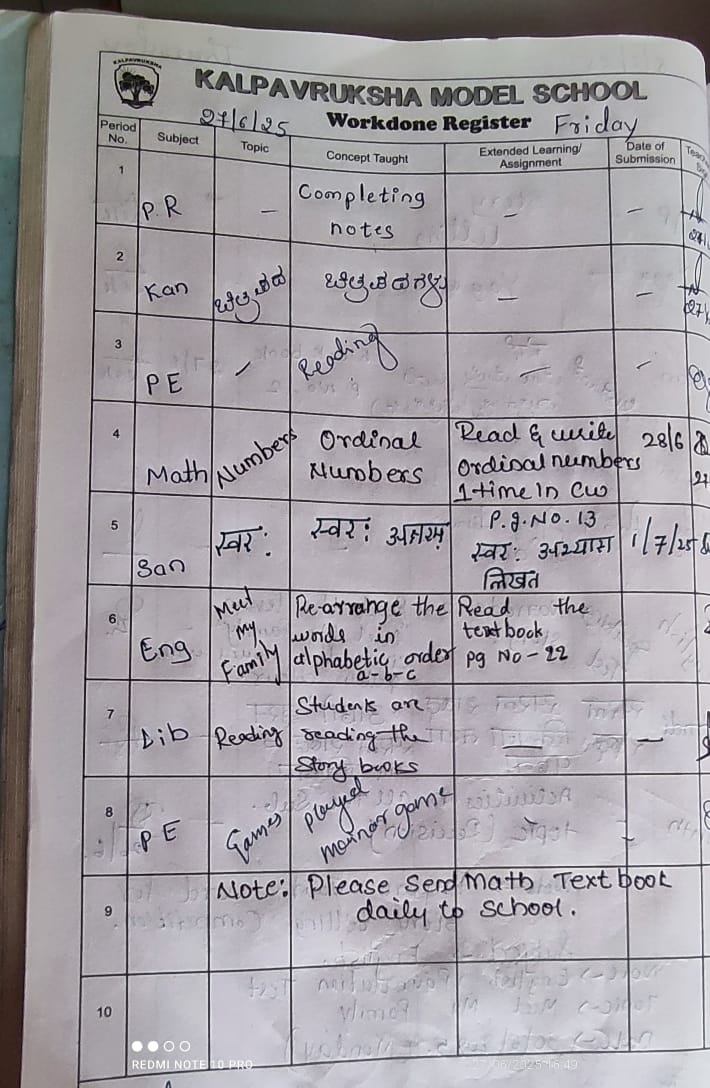 KALPAVRUKSHA
KALPAVRUKSHA MODEL SCHOOL
27/6/25 Workdone Register Friday
Period No. Subject Topic Concept Taught Extended Learning/ Assignment Date of Submission
1 P.R – Completing notes – –
2 Kan – –
3 PE – Reading – –
4 Math Numbers Ordinal Numbers Read & write ordinal numbers 1 time In CW 28/6
5 San स्वर: स्वर: P.g.No.13 स्वर: लिखत 1/7/25
6 Eng Meet my Family Re-arrange the words in alphabetic order a-b-c Read the textbook pg No-22
7 Lib Reading Students are reading the Story books — –
8 PE Games played game - -
9 Note: Please Send Math Text book
daily to School.
10
REDMI NOTE 10 PRO
27/06/2025 16:49